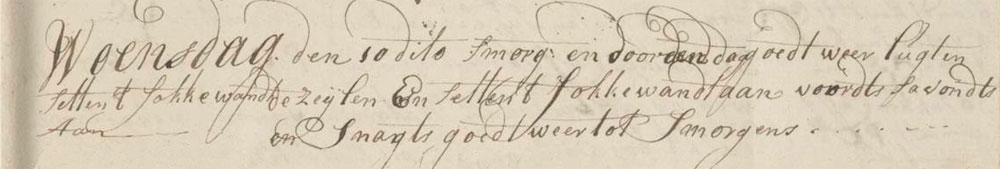 Woensdag. den 10 dito Smorg: en doorden dag goedt weer lugten
settent fokkewandt de zeylen En settent fokkewandt aan voordts savondts
Aan en Snagts goedt weer tot Smorgens